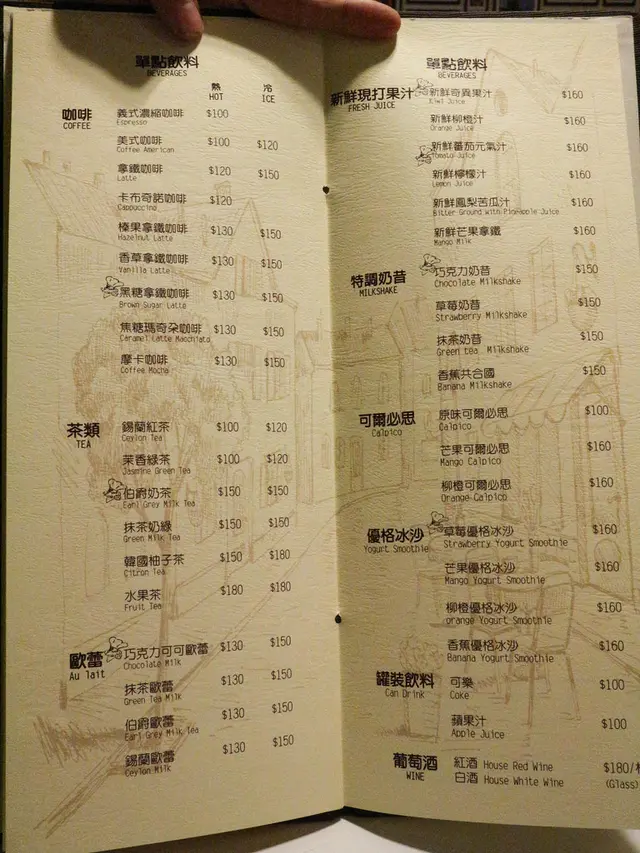 單點飲料
BEVERAGES
熱 冷
HOT ICE
咖啡
COFFEE
義式濃縮咖啡 $100
Espresso
美式咖啡 $100 $120
Coffee American
拿鐵咖啡 $120 $150
Latte
卡布奇諾咖啡 $120
Cappuccino
榛果拿鐵咖啡 $130 $150
Hazelnut Latte
香草拿鐵咖啡 $130 $150
Vanilla Latte
黑糖拿鐵咖啡 $130 $150
Brown Sugar Latte
焦糖瑪奇朵咖啡 $130 $150
Caramel Latte Macchiato
摩卡咖啡 $130 $150
Coffee Mocha
茶類
TEA
錫蘭紅茶 $100 $120
Ceylon Tea
茉香綠茶 $100 $120
Jasmine Green Tea
伯爵奶茶 $150 $150
Earl Grey Milk Tea
抹茶奶綠 $150 $150
Green Milk Tea
韓國柚子茶 $150 $180
Citron Tea
水果茶 $180 $180
Fruit Tea
歐蕾
Au lait
巧克力可可歐蕾 $130 $150
Chocolate Milk
抹茶歐蕾 $130 $150
Green Tea Milk
伯爵歐蕾 $130 $150
Earl Grey Milk Tea
錫蘭歐蕾 $130 $150
Ceylon Milk
單點飲料
BEVERAGES
新鮮現打果汁
FRESH JUICE
新鮮奇異果汁 $160
Kiwi Juice
新鮮柳橙汁 $160
Orange Juice
新鮮蕃茄元氣汁 $160
Tomato Juice
新鮮檸檬汁 $160
Lemon Juice
新鮮鳳梨苦瓜汁 $160
Bitter Ground with Pineapple Juice
新鮮芒果拿鐵 $160
Mango Milk
特調奶昔
MILKSHAKE
巧克力奶昔 $150
Chocolate Milkshake
草莓奶昔 $150
Strawberry Milkshake
抹茶奶昔 $150
Green tea Milkshake
香蕉共合國 $150
Banana Milkshake
可爾必思
Calpico
原味可爾必思 $100
Original Calpico
芒果可爾必思 $160
Mango Calpico
柳橙可爾必思 $160
Orange Calpico
優格冰沙
Yogurt Smoothie
草莓優格冰沙 $160
Strawberry Yogurt Smoothie
芒果優格冰沙 $160
Mango Yogurt Smoothie
柳橙優格冰沙 $160
orange Yogurt Smoothie
香蕉優格冰沙 $160
Banana Yogurt Smoothie
罐裝飲料
Can Drink
可樂 $100
Coke
蘋果汁 $100
Apple Juice
葡萄酒
WINE
紅酒 House Red Wine $180/
白酒 House White Wine (Glass)